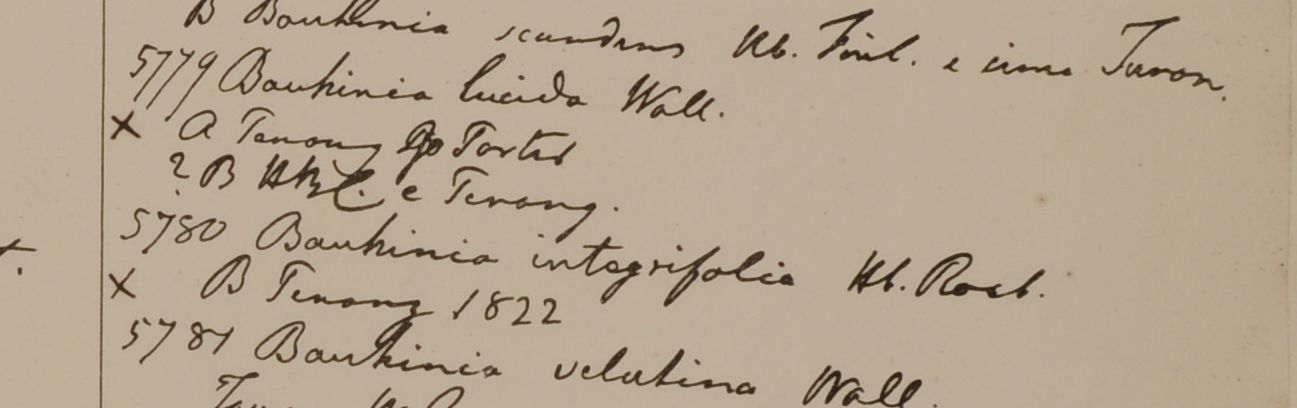 B Bauhinia scandens Hb. Finl. e cima Turon.
5779 Bauhinia lucida Wall.
× a Penang Porter
? B HBC. e Penang.
5780 Bauhinia integrifolia Hb. Roxb.
× B Penang 1822
5781 Bauhinia velutina Wall.